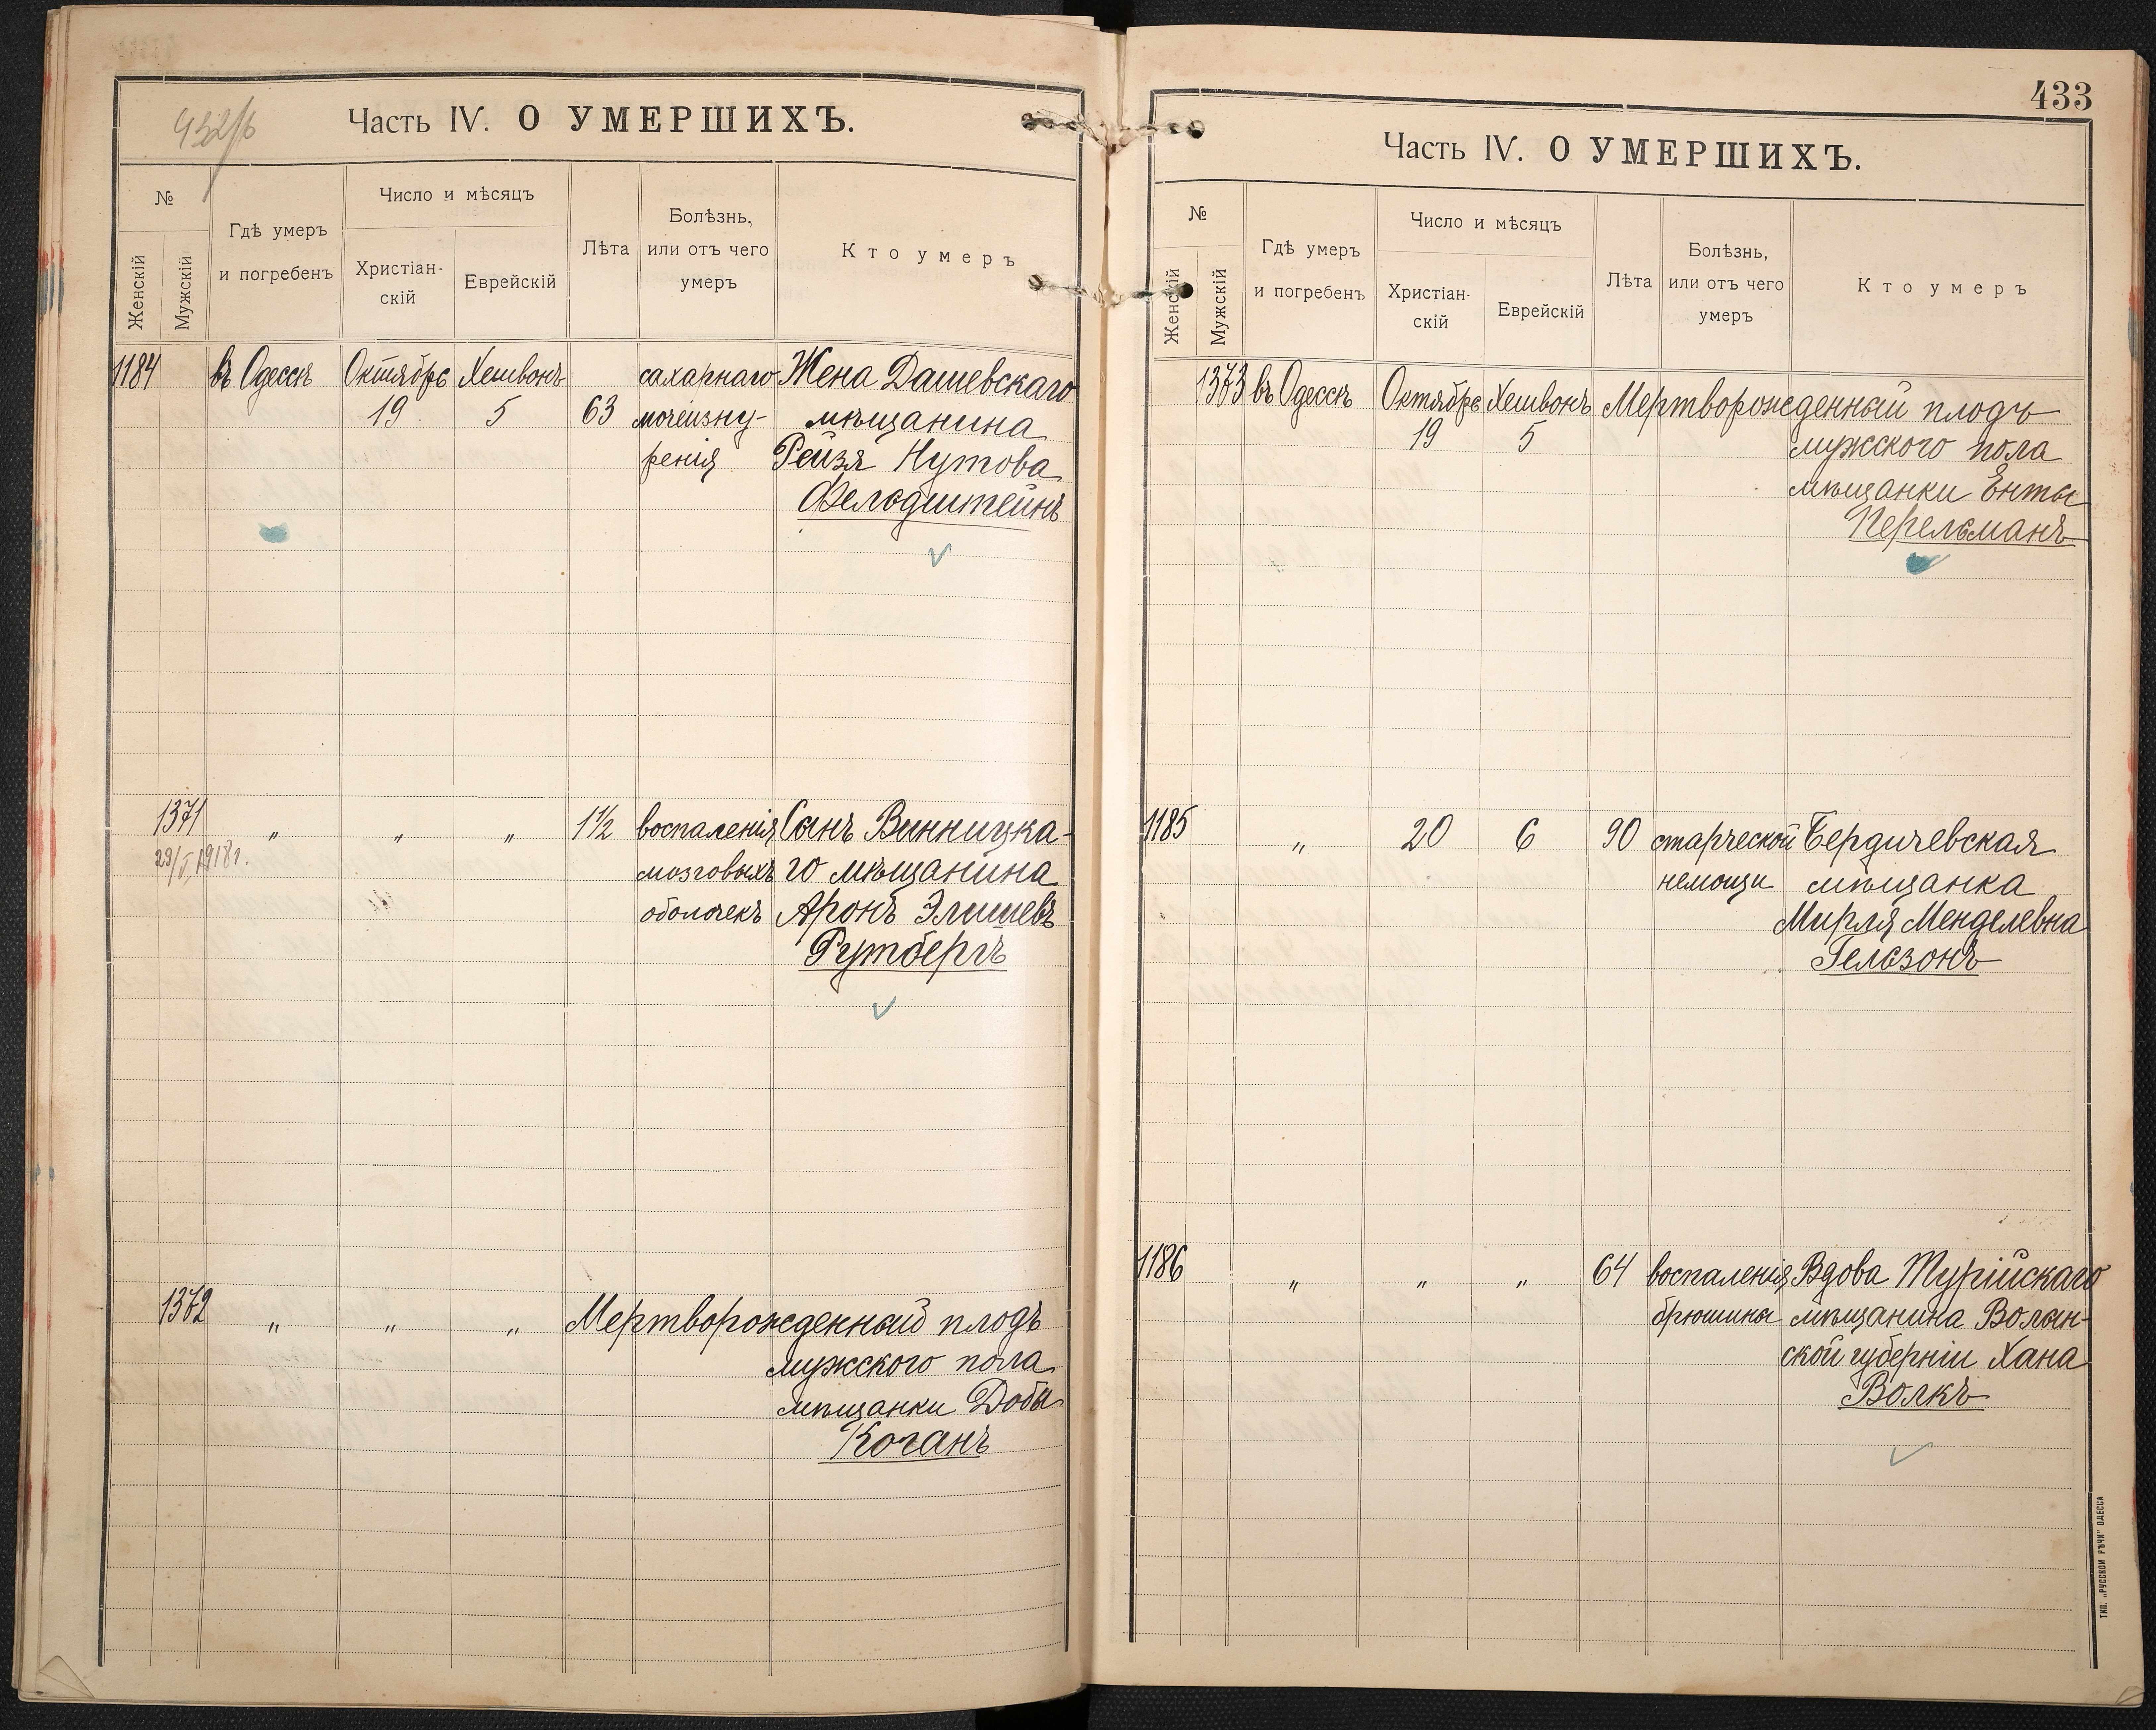 432/б
Часть IV. О УМЕРШИХЪ.
№
Женскій
Мужскій
Гдѣ умеръ
и погребенъ
Число и мѣсяцъ
Христіан-
скій
Еврейскій
Лѣта
Болѣзнь,
или отъ чего
умеръ
Кто умеръ
1184 въ Одессѣ Октябрь Хешвонъ сахарнаго Жена Дашевскаго
19 5 63 мочеизну- мѣщанина
ренія Рейзя Нутова
Фельдштейнъ
1371 „ „ „ 1½ воспаленія Сынъ Винницка-
29/V 1918 г. мозговыхъ го мѣщанина
оболочекъ Аронъ Элишевъ
Рутбергъ
1372 „ „ „ Мертворожденный плодъ
мужского пола
мѣщанки Добы
Коганъ
433
Часть IV. О УМЕРШИХЪ.
№
Женскій
Мужскій
Гдѣ умеръ
и погребенъ
Число и мѣсяцъ
Христіан-
скій
Еврейскій
Лѣта
Болѣзнь,
или отъ чего
умеръ
Кто умеръ
1373 въ Одессѣ Октябрь Хешвонъ Мертворожденный плодъ
19 5 мужского пола
мѣщанки Енты
Перельманъ
1185 „ 20 6 90 старческой Бердичевская
немощи мѣщанка
Мирля Менделевна
Гельзонъ
1186 „ „ „ 64 воспаленія Вдова Турійскаго
брюшины мѣщанина Волын-
ской губерніи Хана
Волкъ
ТИП. „РУССКОЙ РѢЧИ" ОДЕССА